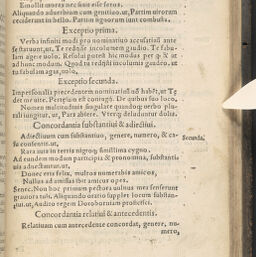 Emollit mores nec sinit esse feros.
Aliquando aduerbium cum genitiuo. ut, Partim uirorum
ceciderunt in bello. Partim signorum sunt combusta.
Exceptio prima.
Verba infiniti modi pro nominatiuo accusatiuū ante
se statuunt, ut, Te redijsse incolumem gaudeo. Te fabu-
lam agere uolo. Resolui potest hic modus per ꝙ & ut
ad hunc modum. Quod tu redijsti incolumis gaudeo. ut
tu fabulam agas, uolo.
Exceptio secunda.
Impersonalia precedentem nominatiuū nō habēt, ut Tę
det me uitę. Pertęsum est coniugij. De quibus suo loco.
Nomen multitudinis singulare quandoq; uerbo plu-
rali iungitur, ut, Pars abiere. Vterq; deluduntur dolis.
Concordantia substantiui & adiectiui.
Adiectiuum cum substantiuo, genere, numero, & ca-
su consentit, ut,
Secunda.
Rara auis in terris nigroq; simillima cygno.
Ad eundem modum participia & pronomina, substanti-
uis adnectuntur, ut,
Donec eris felix, multos numerabis amicos,
Nullus ad amissas ibit amicus opes.
Senec. Non hoc primum pectora uulnus mea senserunt
grauiora tuli. Aliquando oratio supplet locum substan-
tiui, ut, Audito regem Doroberniam proficisci.
Concordantia relatiui & antecedentis.
Relatiuum cum antecedente concordat, genere, nu-
mero,